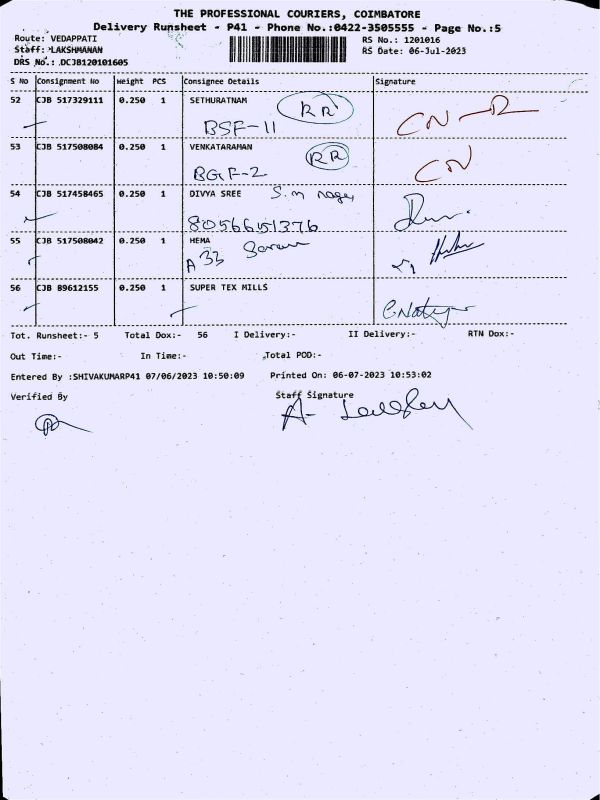 THE PROFESSIONAL COURIERS, COIMBATORE
Delivery Runsheet - P41 - Phone No.:0422-3505555 - Page No.:5
Route: VEDAPPATI RS No.: 1201016
Staff: LAKSHMANAN RS Date: 06-Jul-2023
DRS No.: .DCJB120101605
S No Consignment No Weight PCS Consignee Details Signature
52 CJB 517329111 0.250 1 SETHURATNAM RR
BSF-11 CN-R
53 CJB 517508084 0.250 1 VENKATARAMAN RR
BGF-2 CN
54 CJB 517458465 0.250 1 DIVYA SREE S.m nagar
8056651376
55 CJB 517508042 0.250 1 HEMA
A 33
56 CJB 89612155 0.250 1 SUPER TEX MILLS
Tot. Runsheet:- 5 Total Dox:- 56 I Delivery:- II Delivery:- RTN Dox:-
Out Time:- In Time:- Total POD:-
Entered By :SHIVAKUMARP41 07/06/2023 10:50:09 Printed On: 06-07-2023 10:53:02
Verified By Staff Signature